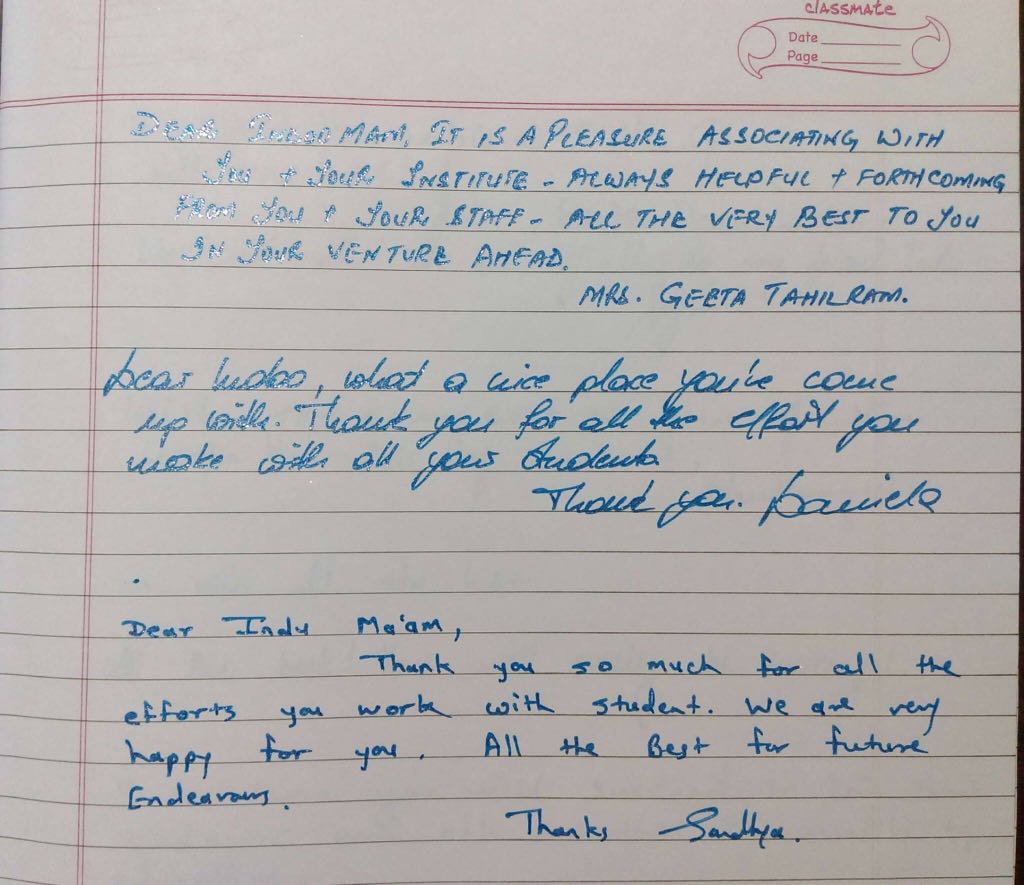 classmate
Date
Page
DEAR INDOO MAM, IT IS A PLEASURE ASSOCIATING WITH
YOU + YOUR INSTITUTE - ALWAYS HELPFUL + FORTHCOMING
FROM YOU + YOUR STAFF - ALL THE VERY BEST TO YOU
IN YOUR VENTURE AHEAD.
MRS. GEETA TAHILRAM.
Dear Indoo, what a nice place you've come
up with. Thank you for all the effort you
make with all your students.
Thank you. Daniela
Dear Indu Ma'am,
Thank you so much for all the
efforts you work with student. We are very
happy for you. All the Best for future
Endeavours.
Thanks Sandhya.